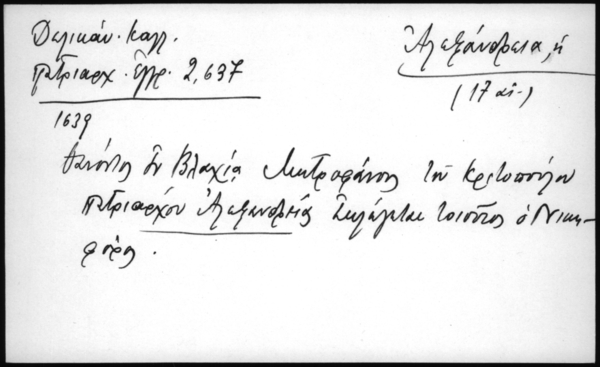 Δελικάν. Καλλ.
Πατριαρχ. Ἔγγρ. 2, 637
Ἀλεξάνδρεια, ἡ
(17 αἰ.)
1639
Θανόντος ἐν Βλαχίᾳ Μητροφάνους τοῦ Κριτοπούλου
Πατριάρχου Ἀλεξανδρείας ἐκλέγεται τοιοῦτος ὁ Νικη-
φόρος.